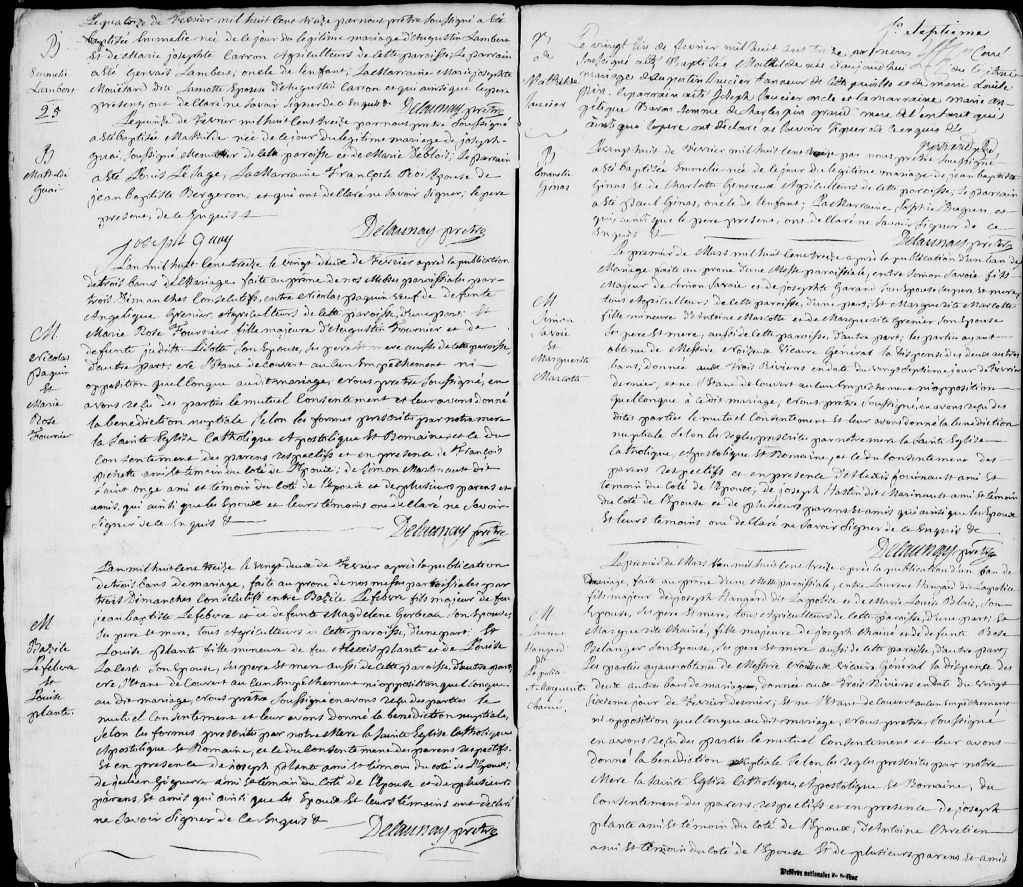 Le quatorze de Fevrier mil huit Cent treize par nous prêtre Soussigné a été
B
baptisée Emmelie née de le jour du legitime mariage d'Augustin Lambert
Emmelie
Lambert
Et de Marie josephte Carron Agriculteurs de cette paroisse; Le parrain
a été Gervais Lambert, oncle de l'enfant; La Marraine Marie josephte
25
Epouse d'Augustin Carron et qui ainsi que le pere
présent, ont declaré ne Savoir Signer de ce Enquis &
Delaunay prêtre
Le quinze de Fevrier mil huit Cent treize par nous prêtre Soussigné
B
Mathilde
Guai
a été baptisée Mathilde née de ce jour du legitime mariage de joseph
guai, Soussigné Menuisier de cette paroisse et de Marie Deblois; Le parrain
a été Louis LeSage, La Marraine Françoise Roi Epouse de
jean Baptiste Bergeron, et qui ont declaré ne Savoir Signer, le pere
présent, de ce Enquis &
Joseph Guay
Delaunay prêtre
L'an mil huit Cent treize le vingt deux de Fevrier après la publication
de trois bans de Mariage faite au prône de nos Messes paroissiales par
trois Dimanches Consecutifs, entre Nicolas paquin veuf de defunte
Angelique Grenier Agriculteurs de cette paroisse, d'une part Et
M
Nicolas
paquin
Et
Marie
Rose
Fournier
Marie Rose Fournier fille majeure d'Augustin Fournier et de
defunte judith Lizotte Son Epouse, Ses père et mere aussi de cette paroisse,
d'autre part; Ne S'étant decouvert aucun Empêchement ni
opposition quelconque audit mariage, Nous prêtre Soussigné, en
avons reçu des parties le mutuel Consentement et leur avons donné
la benediction nuptiale, Selon les formes prescrites par notre mere
la Sainte Eglise Catholique Apostolique Et Romaine, et ce du
Consentement des parens respectifs et en presence de François
pichette ami et temoin du coté de l'Epoux; de Simon Martineau dit
Saint onge ami et témoin du coté de l'Epouse et de plusieurs parens et
amis, qui ainsi que les Epoux et leurs témoins ont declaré ne Savoir
Signer de ce Enquis &
Delaunay prêtre
L'an mil huit Cent treize le vingt deux de Fevrier après la publication
de trois bans de mariage, faite au prône de nos messes paroissiales par
trois Dimanches Consecutifs entre Bazile Lefebvre fils majeur de feu
jean baptiste Lefebvre et de defunte Magdelene Gerbeau Son Epouse,
M
Bazile
Lefebvre
et
Louise
plante
Ses pere et mere, tous Agriculteurs de cette paroisse, d'une part Et
Louise plante fille mineure de feu Alexis plante et de Louise
Son Epouse, Ses pere et mere aussi de cette paroisse, d'autre part;
Ne S'étant decouvert aucun Empêchement ni opposition quelconque
au dit mariage, Nous prêtre Soussigné en avons reçu des parties le
mutuel Consentement et leur avons donné la benediction nuptiale,
Selon les formes prescrites par notre Mere la Sainte Eglise Catholique
Apostolique Et Romaine, et ce du Consentement des parens respectifs
Et en presence de joseph plante ami et temoin du coté de l'Epoux;
de julien Giguerre ami et témoin du coté de l'Epouse et de plusieurs
parens Et amis qui ainsi que les Epoux Et leurs temoins ont declaré
ne Savoir Signer de ce Enquis &
Delaunay prêtre
fo. Septieme
Le vingt Six de fevrier mil huit Cent treize par nous Curé
B
Mathilde
Soucier
Soussigné a été Baptisée Mathilde née d'aujourd'hui du legitime
mariage de Soucier Tanneur de cette paroisse et de marie Louise
pepin. Le parain a été Joseph Soucier oncle et la marraine marie an-
gelique femme de Charles pepin grand mere de l'enfant qui
ainsi que le pere ont declaré ne Sçavoir Signer de ce enquis &
Le vingt huit de Fevrier mil huit Cent treize par nous prêtre Soussigné
B
Emmelie
Ginas
a été baptisée Emmelie née de ce jour du legitime mariage de jean baptiste
Ginas et de Charlotte Genereux Agriculteurs de cette paroisse; Le parrain
a été paul Ginas, oncle de l'enfant; La Marraine, Sophie et
qui, ainsi que le pere present, ont declaré ne Savoir Signer de ce
Enquis &
Delaunay prêtre
Le premier de Mars mil huit Cent treize après la publication d'un ban de
Mariage faite au prône d'une Messe paroissiale, entre Simon Savoie fils
Majeur de Simon Savoie et de josephte Garand Son Epouse, Ses pere et mere,
M
Simon
Savoie
Et
Marguerite
Marcotte
tous Agriculteurs de cette paroisse, d'une part; Et Marguerite Marcotte
fille mineure d'Antoine Marcotte et de Marguerite Grenier Son Epouse
Ses pere Et mere, aussi de cette paroisse, d'autre part; les parties ayant
obtenu de Messire Noiseux Vicaire General la dispense des deux autres
bans, donnée aux Trois Rivieres en date du vingt Septieme jour de Fevrier
dernier, et ne S'étant decouvert aucun Empêchement ni opposition
quelconque à ce dit mariage, Nous prêtre Soussigné, en avons reçu des
dites parties le mutuel Consentement et leur avons donné la benediction
nuptiale Selon les regles prescrites par notre mere la Sainte Eglise
Catholique, Apostolique Et Romaine, et ce du Consentement des
parens respectifs et en presence d'Alexis ami et
temoin du coté de l'Epoux; de joseph dit ami et témoin
du coté de l'Epouse et de plusieurs parens et amis qui ainsi que les Epoux
Et leurs temoins ont declaré ne Savoir Signer de ce Enquis &
Delaunay prêtre
Le premier de Mars mil huit Cent treize après la publication d'un ban de
mariage, faite au prône d'une Messe paroissiale, entre Laurent Hangard dit Lapolice
fils majeur de joseph Hangard dit Lapolice et de Marie Louise Blais, Son
M
Laurent
Hangard
dit
Lapolice
et Marguerite
Chainé
Epouse, Ses pere et mere, tous Agriculteurs de cette paroisse, d'une part; Et
Marguerite Chainé, fille majeure de joseph Chainé et de defunte Rose
Belanger Son Epouse, Ses pere et mere aussi de cette paroisse, d'autre part;
Les parties ayant obtenu de Messire Noiseux Vicaire General la dispense des
deux autres bans de mariage, donnée aux Trois Rivieres en date du vingt
Sixieme jour de Fevrier dernier; et ne S'étant decouvert aucun Empêchement
ni opposition quelconque au dit mariage, Nous prêtre Soussigné
en avons reçu des parties le mutuel Consentement et leur avons
donné la benediction nuptiale Selon les regles prescrites par notre
Mere la Sainte Eglise Catholique, Apostolique et Romaine, du
Consentement des parens respectifs et en presence de joseph
plante ami et témoin du coté de l'Epoux; d'Antoine Chretien
ami et témoin du coté de l'Epouse Et de plusieurs parens et amis
Archives nationales du Québec